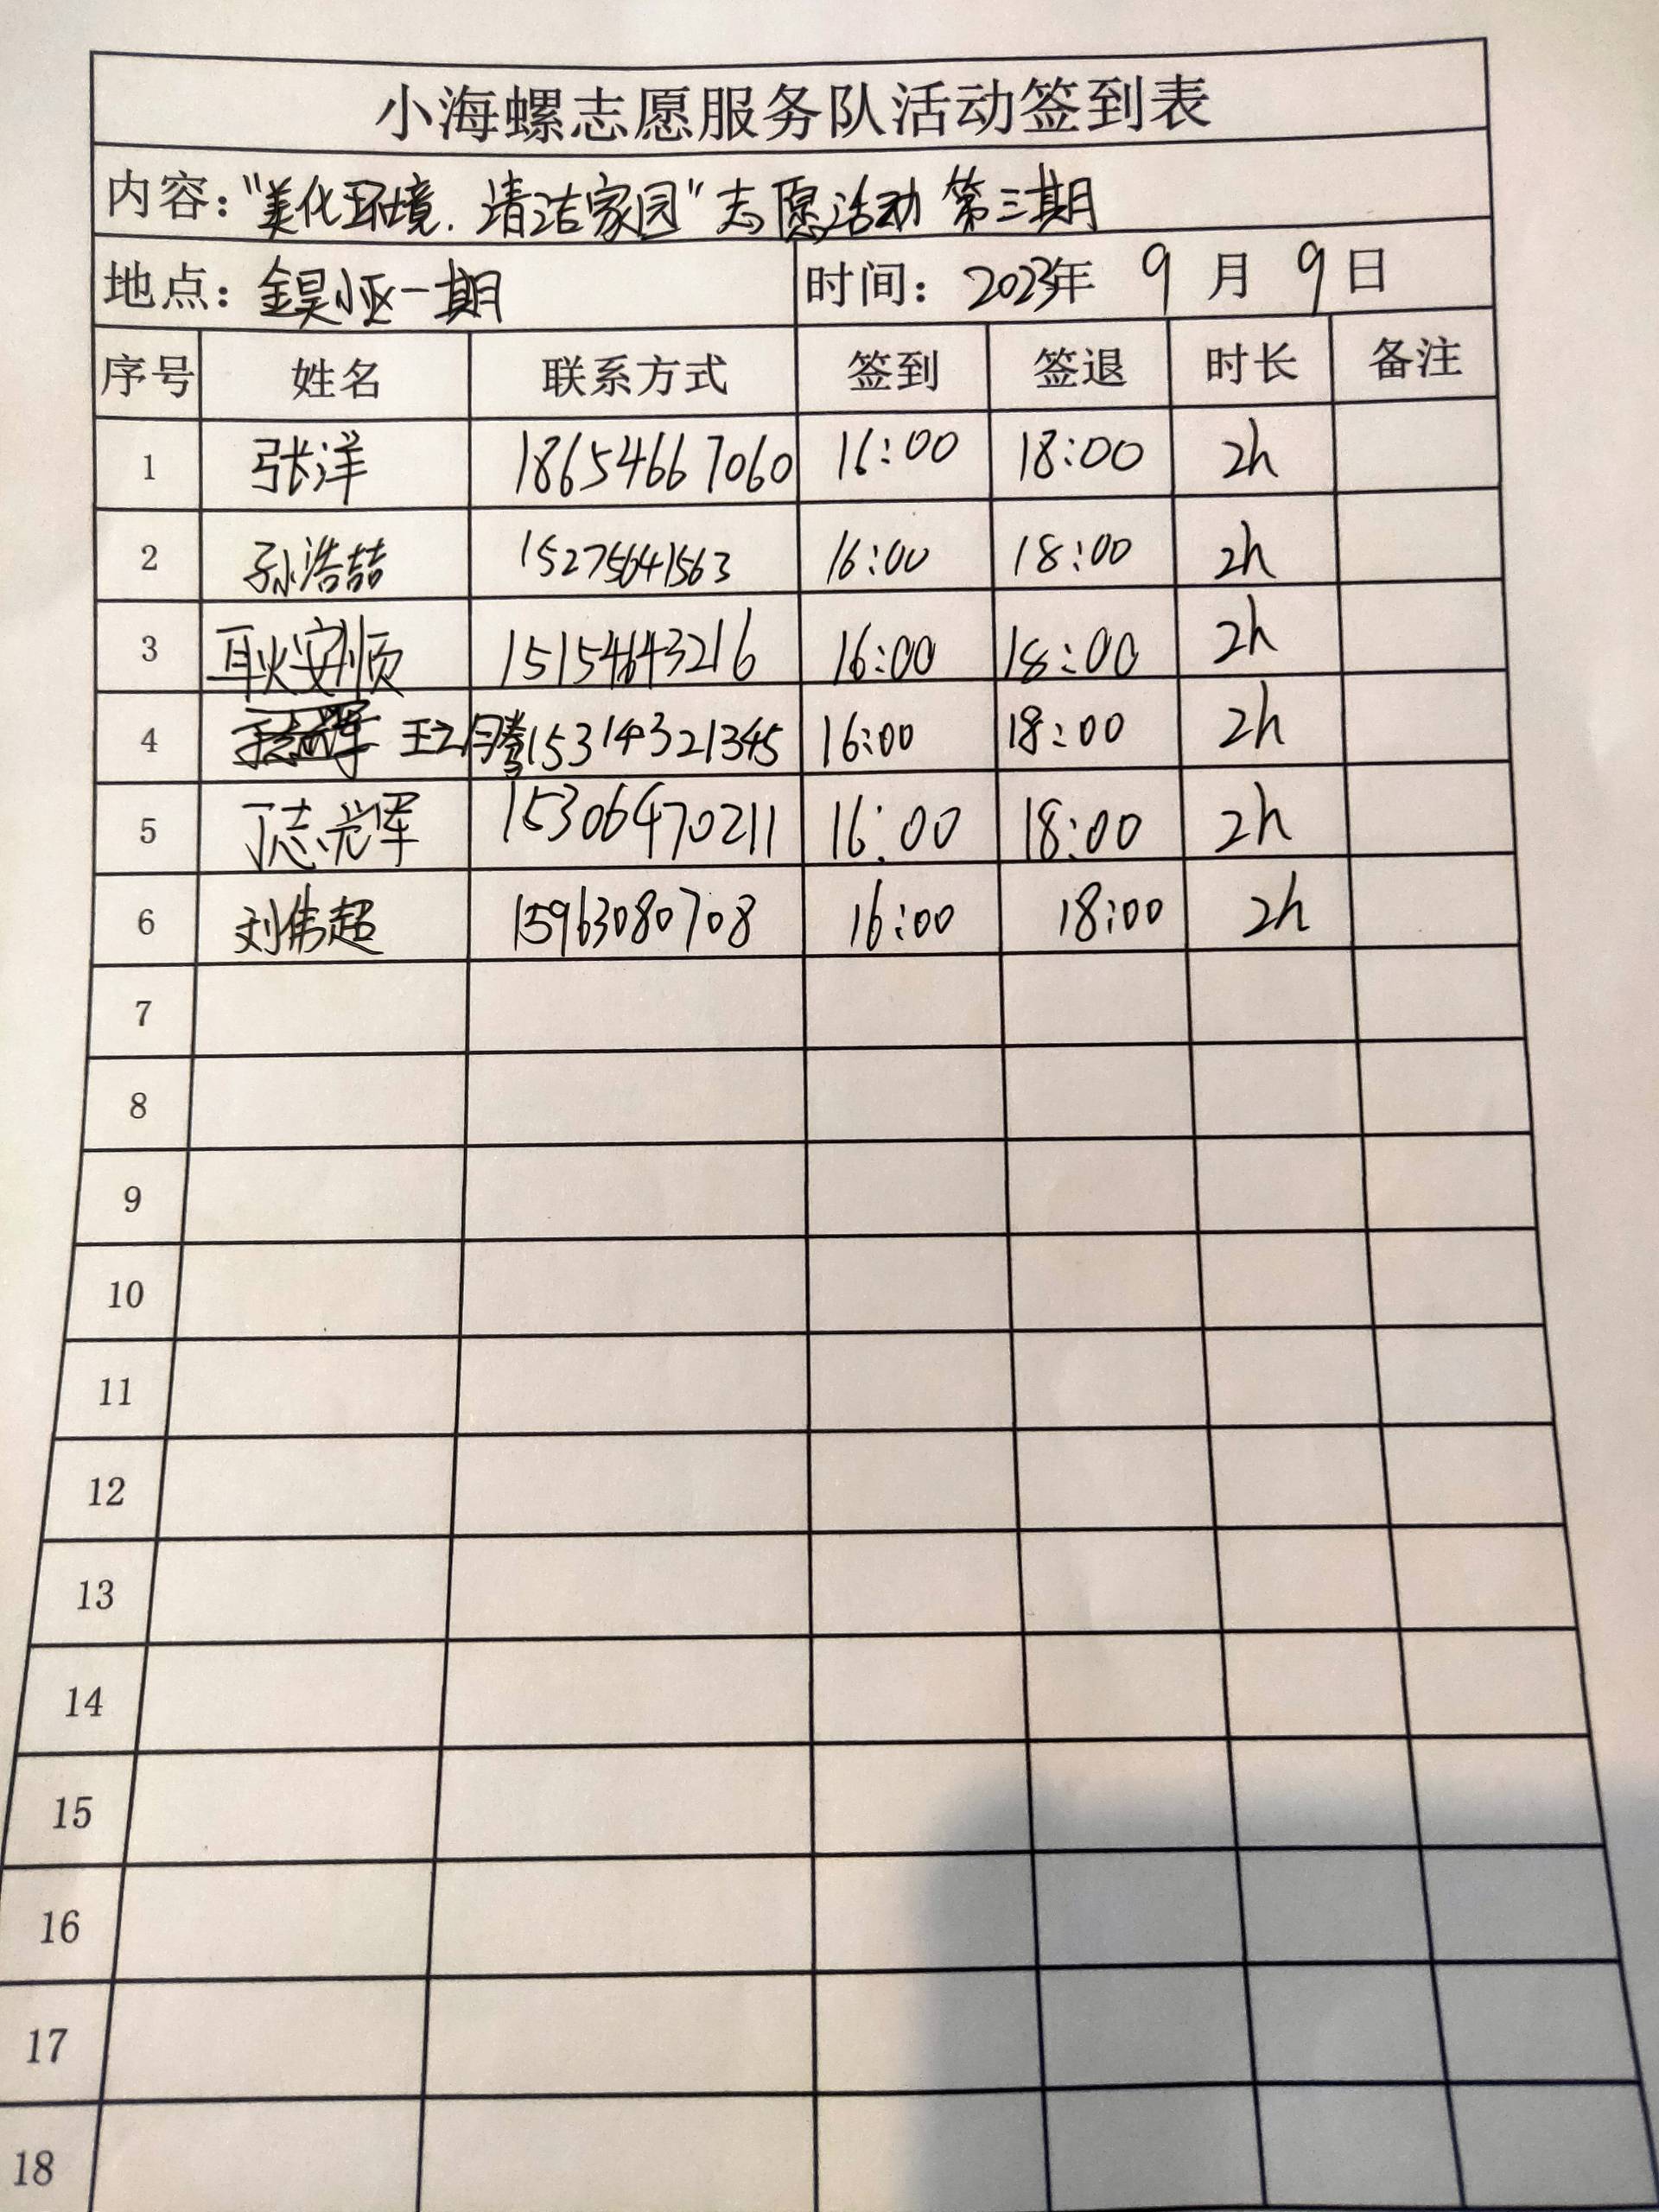 小海螺志愿服务队活动签到表
内容："美化环境.清洁家园"志愿活动 第三期
地点：金昊小区一期 时间：2023年 9月 9日
序号 姓名 联系方式 签到 签退 时长 备注
1 张洋 18654667060 16:00 18:00 2h
2 孙浩喆 15275641563 16:00 18:00 2h
3 耿安顺 15154643216 16:00 18:00 2h
4 王之腾 15314321345 16:00 18:00 2h
5 丁志辉 15306470211 16:00 18:00 2h
6 刘伟超 15963080708 16:00 18:00 2h
7
8
9
10
11
12
13
14
15
16
17
18